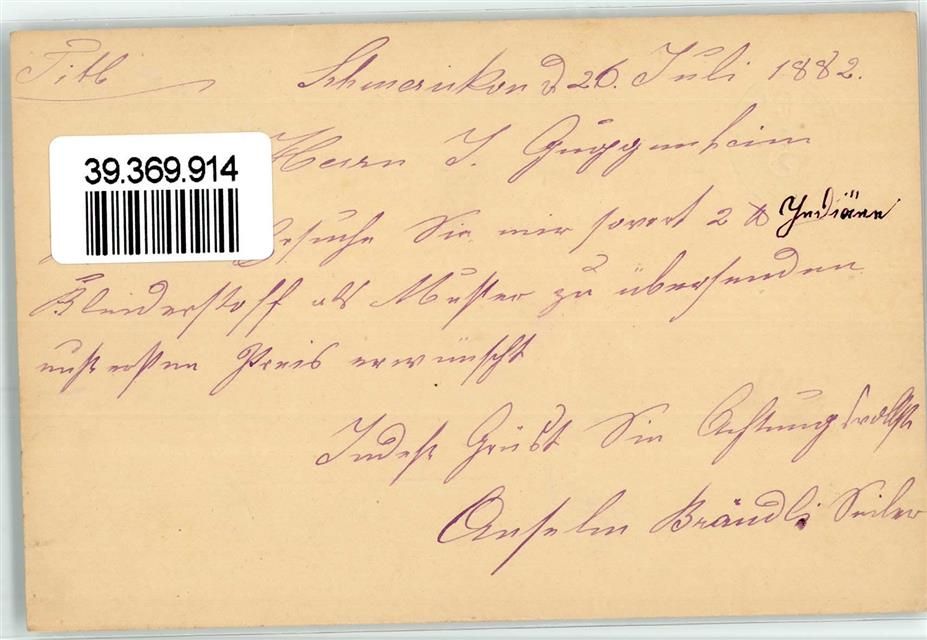 Titl
Schmerikon d 26. Juli 1882.
Herrn J. Guggenheim
39.369.914
Ersuche Sie mir sovort 2 ℔ Indiäne
Kleiderstoff als Muster zu übersenden
Preis erwünscht
Indeß Grüst Sie Achtungsvollst
Anselm Brändli Seiler